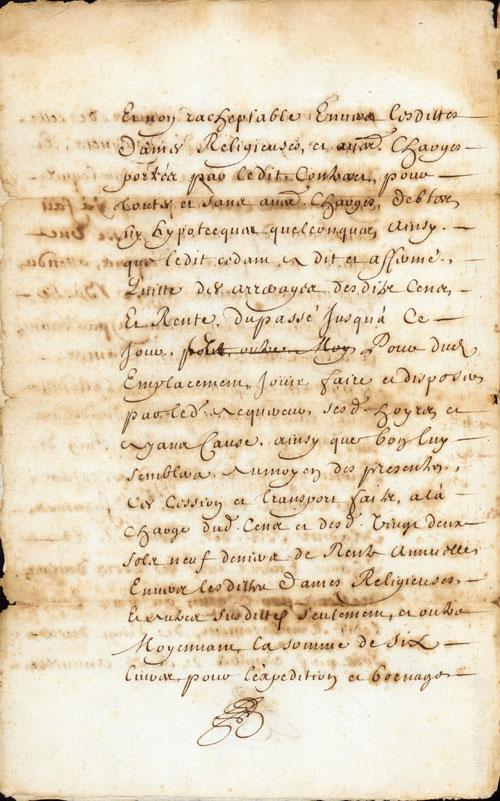 Et non racheptable Envers lesdittes
Dames Religieuses, et autres Charges
portées par ledit Contract, pour
toutes et sans autres Charges, debtes
ny hypotecques quelconques, ainsy
que ledit cedant a dit et affirmé,
Quitte des arrerages desdits Cens
Et Rente, du passé jusqu'à Ce
Jour, Pour dud.
Emplacement, Jouir faire et disposer
par led. acquereur, sesd. hoyrs et
ayans Cause, ainsy que bon luy
semblera au moyen des presentes,
Ces Cession et transport faits, a la
Charge dud. Cens et desd. Vingt deux
sols neuf deniers de Rente Annuelle
Envers lesdittes Dames Religieuses,
Et autres susdittes seulement, et outre
Moyennant la somme de Six
Livres, pour l'expedition et bornage